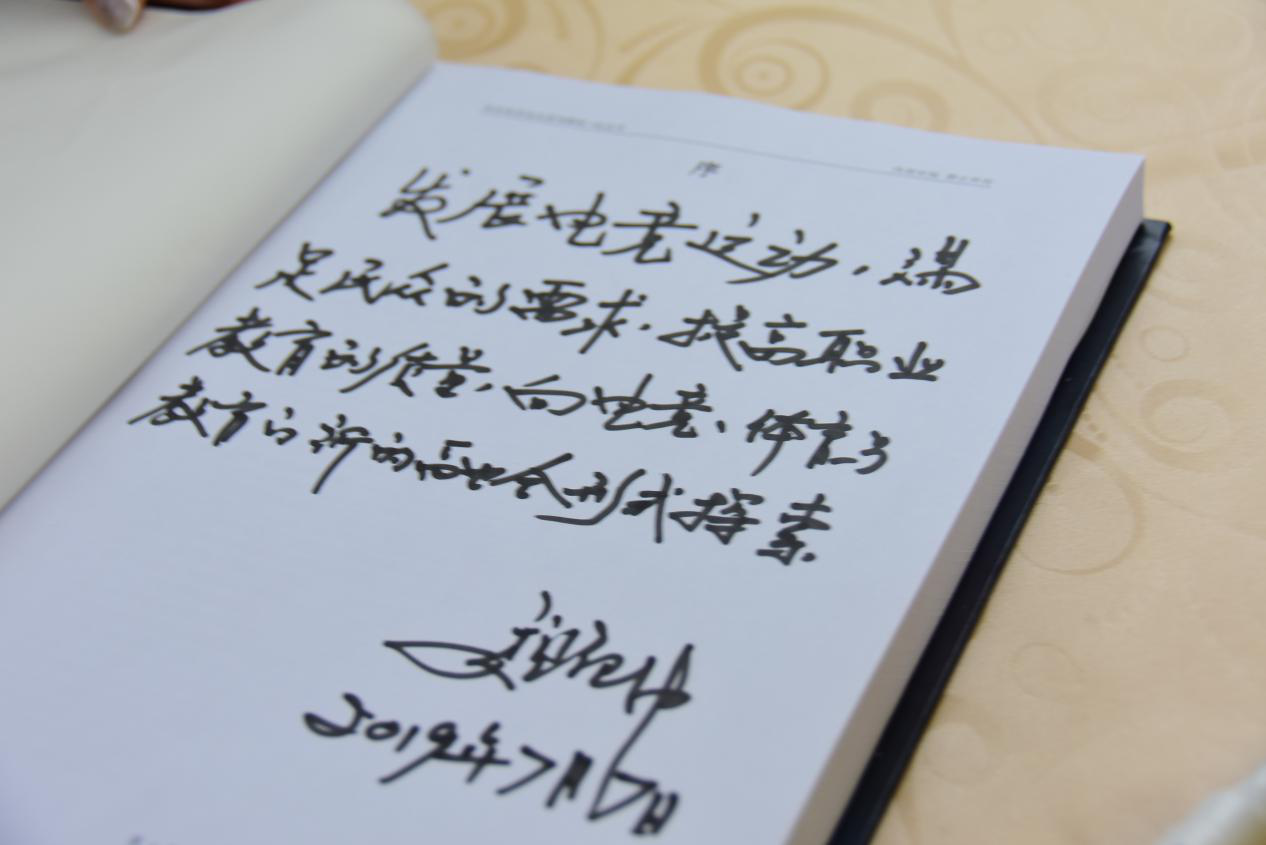 序
发展电竞运动，满
足民众的需求，提高职业
教育的质量，向电竞、体育与
教育的新的融合形式探索
2019年7月17日